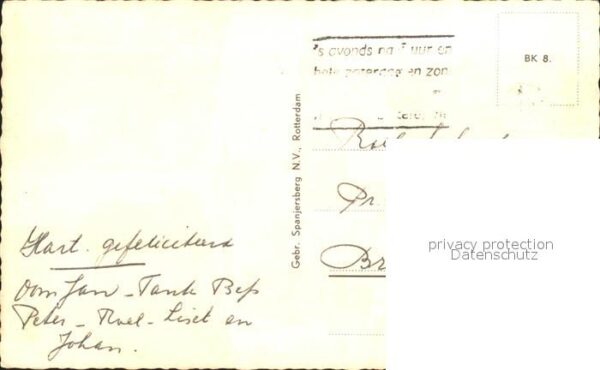 Hart. gefeliciteerd
Oom Jan - Tante Bep
Peter - Roel - Liset en
Johan.
Gebr. Spanjersberg N.V., Rotterdam
's avonds na 7 uur en
zaterdag en zon
BK 8.
Pr.
Br
privacy protection
Datenschutz